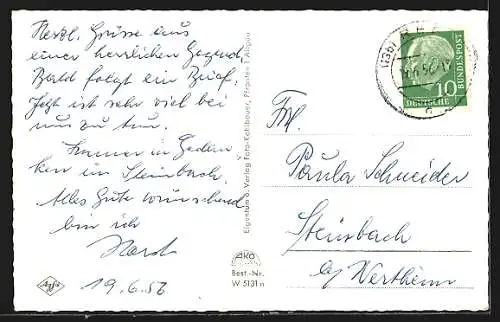 Herzl. Grüsse aus
einer herrlichen Gegend,
Bald folgt ein Brief,
Jetzt ist sehr viel bei
uns zu tun.
Immer in Gedan-
ken in Steinbach.
Alles Gute wünschend
bin ich
Horst
19.6.56
Agfa
Eigentum u. Verlag Foto-Kohlbauer, Pfronten i. Allgäu
AKO
Best.-Nr.
W 5131 n
10
DEUTSCHE
BUNDESPOST
Frl.
Paula Schneider
Steinbach
bei Wertheim